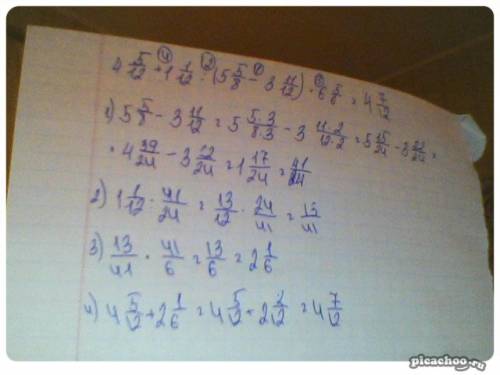 4 5/12 + 1 1/12 : (5 5/8 - 3 11/12) · 6 5/8 = 4 7/12
1) 5 5/8 - 3 11/12 = 5 5·3/8·3 - 3 11·2/12·2 = 5 15/24 - 3 22/24 =
= 4 39/24 - 3 22/24 = 1 17/24 = 41/24
2) 1 1/12 : 41/24 = 13/12 · 24/41 = 13/41
3) 13/41 · 41/6 = 13/6 = 2 1/6
4) 4 5/12 + 2 1/6 = 4 5/12 + 2 2/12 = 4 7/12
picachoo.ru